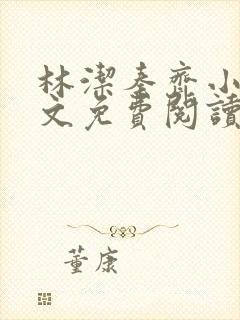 林潔秦齊小
文免費閱讀
董康